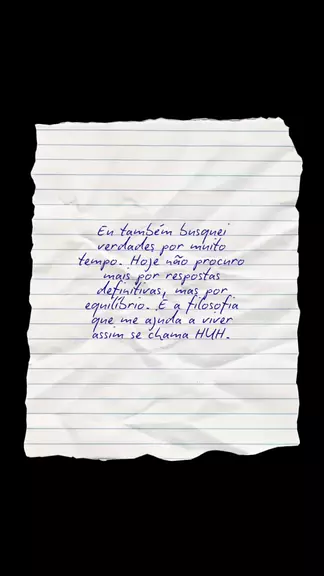 Eu também busquei
verdades por muito
tempo. Hoje não procuro
mais por respostas
definitivas, mas por
equilíbrio. E a filosofia
que me ajuda a viver
assim se chama HUH.